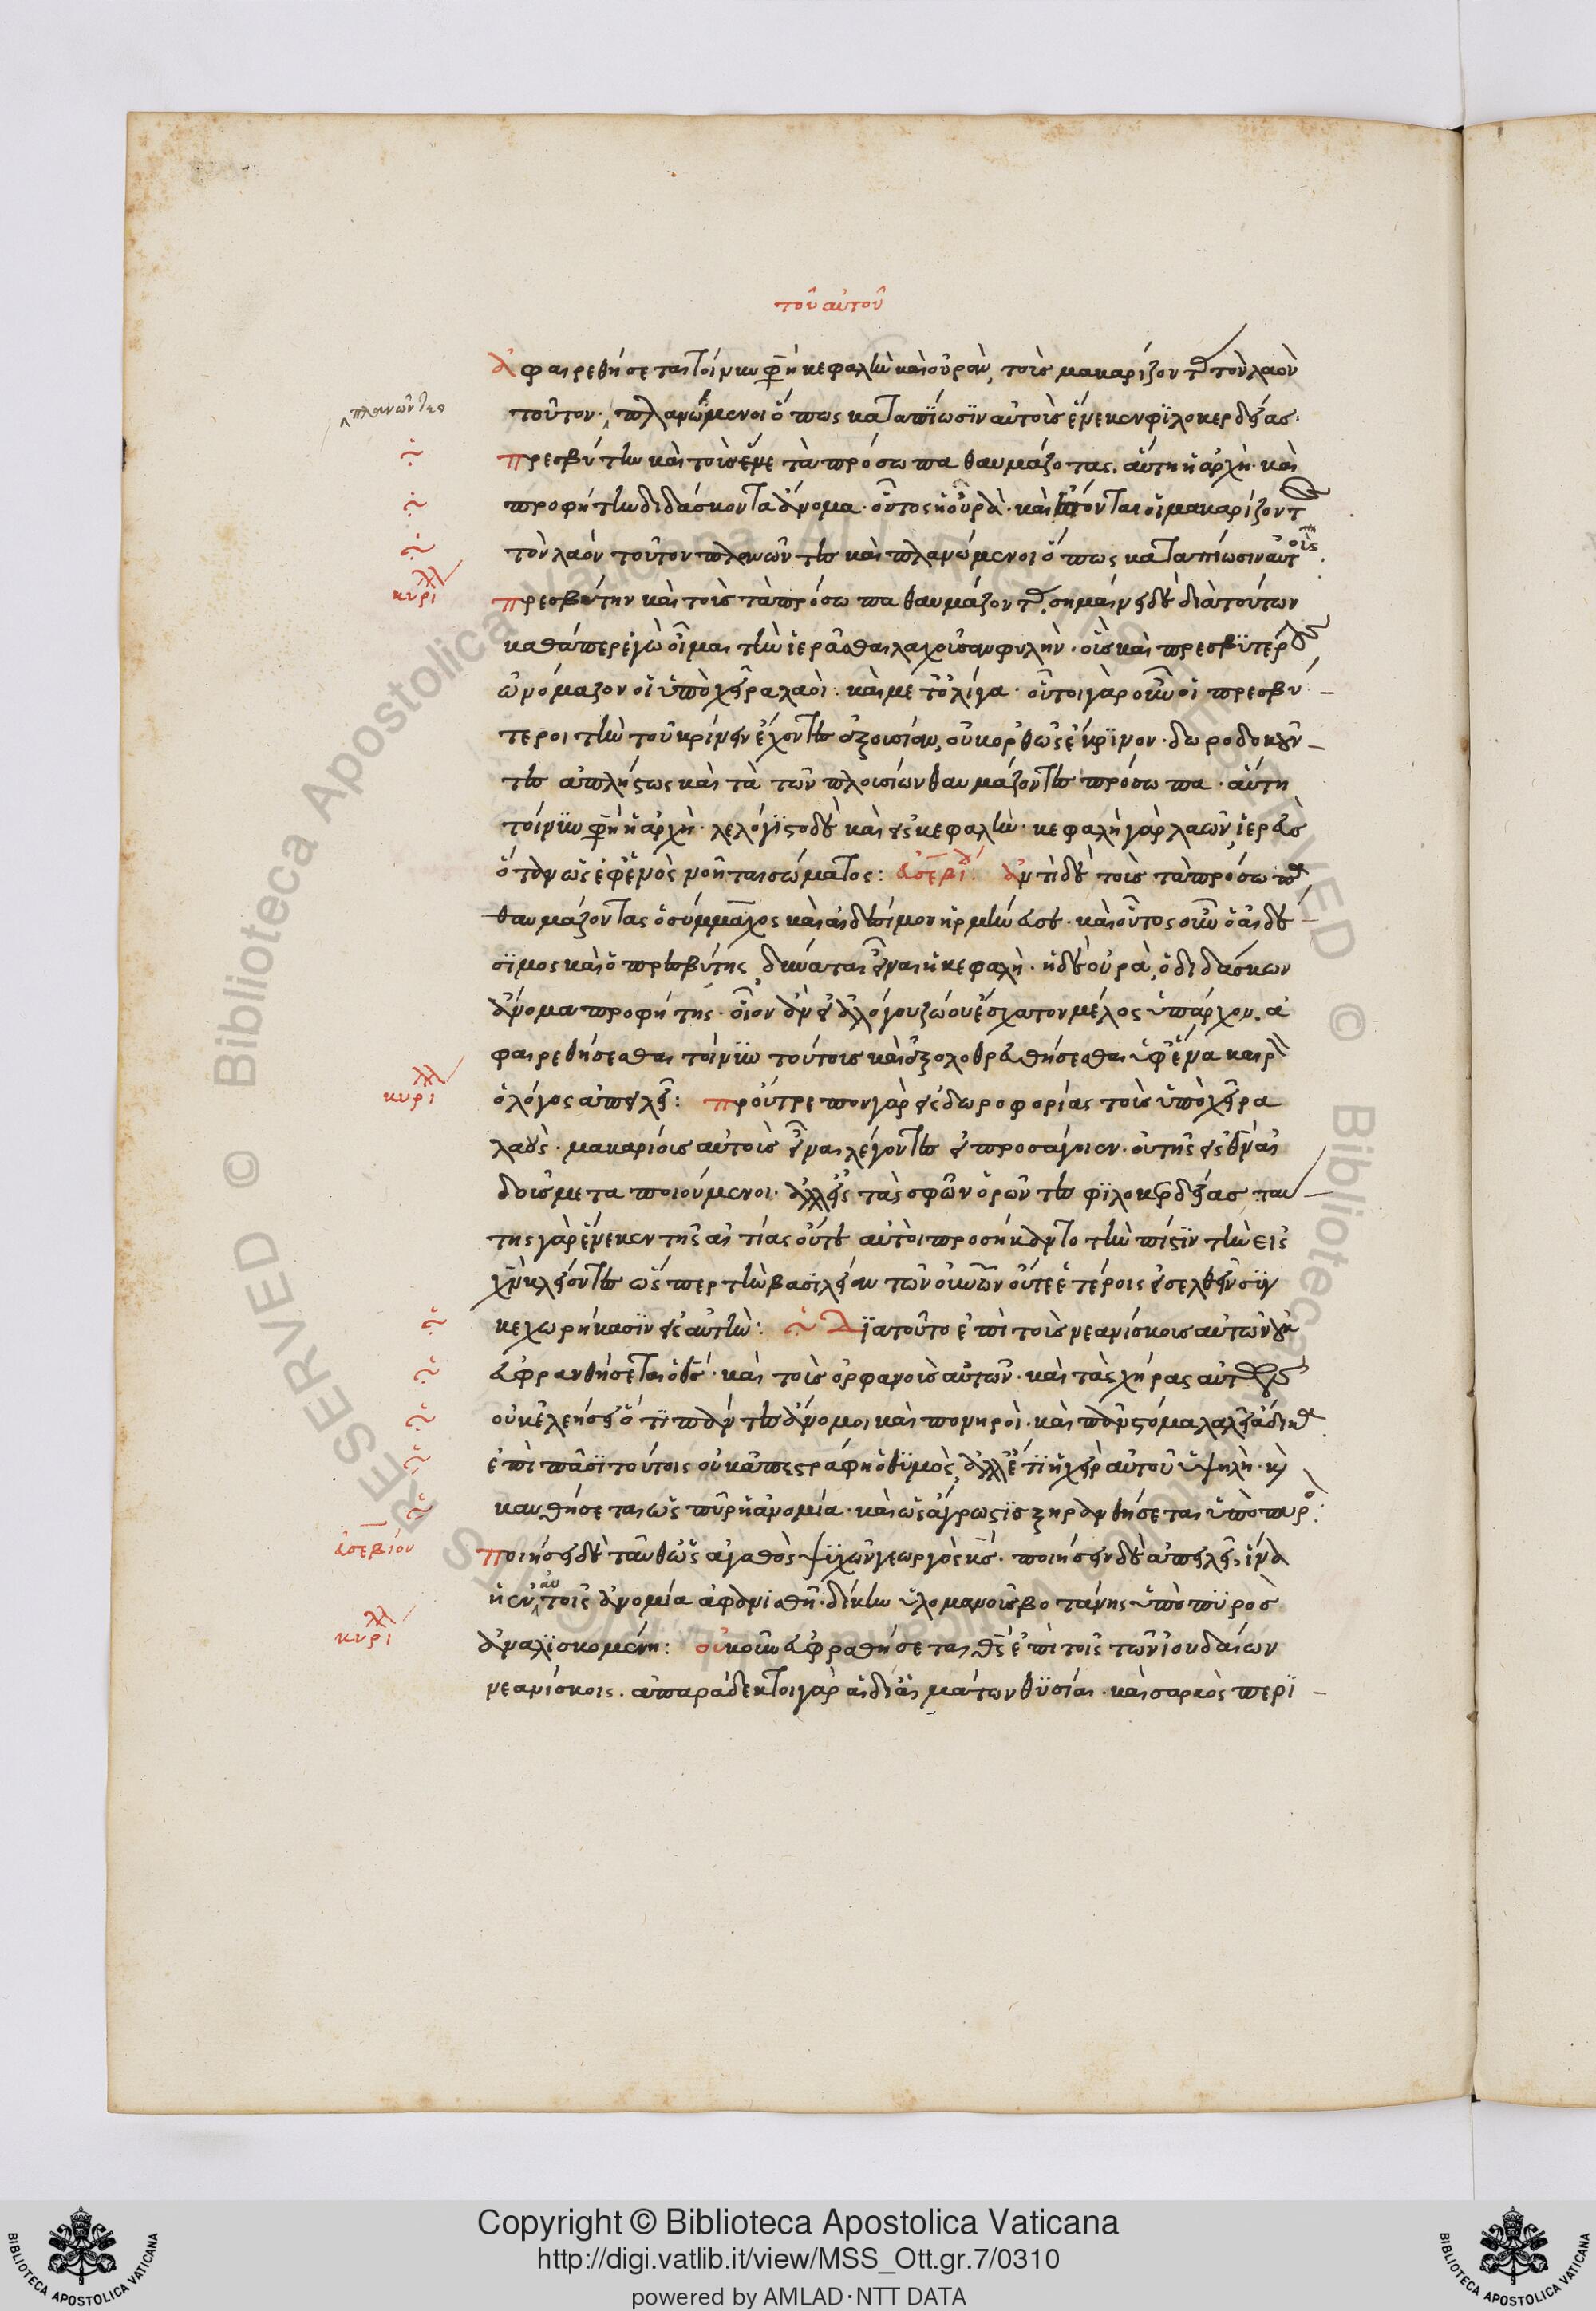 τοῦ αὐτοῦ
ἀφαιρεθήσεται τοίνυν φη κεφαλὴν καὶ οὐρὰν, τοὺς μακαρίζοντας τὸν λαὸν
πλανῶντες
τοῦτον· πλανώμενοι ὅπως καταπίωσιν αὐτοὺς ἕνεκεν φιλοκερδείας·
πρεσβύτην καὶ τοὺς τὰ πρόσωπα θαυμάζοτας. αὕτη ἡ ἀρχὴ· καὶ
προφήτην διδάσκοντα ἄνομα· οὗτος ἡ οὐρὰ· καὶ ἔσονται οἱ μακαρίζοντες
τὸν λαὸν τοῦτον πλανῶντες καὶ πλανώμενοι ὅπως καταπίωσιν αὐτούς.
κυριλλ
πρεσβύτην καὶ τοὺς τὰ πρόσωπα θαυμάζοντας, σημαίνει δὲ διὰ τούτων
καθάπερ ἐγὼ οἶμαι τὴν ἱερᾶσθαι λαχοῦσαν φυλήν· οὓς καὶ πρεσβυτέρους
ὠνόμαζον οἱ ὑπὸ χεῖρα λαοί. καὶ μετ ὀλίγα· οὗτοι γὰρ οὖν οἱ πρεσβύ
τεροι τὴν τοῦ κρίνειν ἔχοντες ἐξουσίαν, οὐκ ὀρθῶς ἔκρινον· δωροδοκοῦν
τες ἀπλήστως καὶ τὰ τῶν πλουσίων θαυμάζοντες πρόσωπα· αὕτη
τοίνυν φη ἡ ἀρχὴ· λελόγισται δὲ καὶ εἰς κεφαλὴν· κεφαλὴ γὰρ λαῶν, ἱερεὺς
ὅταν ὡς ἐφ ἑνὸς νοῆται σώματος: εὐσεβίου. ἀντὶ δὲ τοῦς τὰ πρόσωπα
θαυμάζοντας ὁ σύμμαχος καὶ αἰδέσιμον ἡρμήνευσε· καὶ οὗτος οὖν ὁ αἰδέ
σιμος καὶ ὁ πρεσβύτης, δύναται εἶναι ἡ κεφαλὴ· ἡ δὲ οὐρὰ, ὁ διδάσκων
ἄνομα προφήτης· οἷον ἂν εἰ ἀλόγου ζώου ἔσχατον μέλος ὑπάρχον. ἀ
φαιρεθήσεσθαι τοίνυν τούτους καὶ ἐξολοθρευθήσεσθαι ὑφ ἕνα καιρὸν
κυριλλ
ὁ λόγος ἀπειλεῖ: προὔτρεπον γὰρ εἰς δωροφορίας τοὺς ὑπὸ χεῖρα
λαούς· μακαρίους αὐτοὺς εἶναι λέγοντες εἰ προσάγοιεν· οὐ τῆς εἰς θεὸν αἰ
δοῦς μεταποιούμενοι· ἀλλ εἰς τὰς σφῶν ὁρῶντες φιλοκερδείας· ταύ
της γὰρ ἕνεκεν τῆς αἰτίας οὔτε αὐτοὶ προσήκαντο τὴν πίστιν τὴν εἰς
χν κλείοντες ὥσπερ τὴν βασιλείαν τῶν οὐνῶν οὔτε ἑτέροις εἰσελθεῖν συγ
κεχωρήκασιν εἰς αὐτὴν: Διατοῦτο ἐπὶ τοὺς νεανίσκους αὐτῶν οὐκ
εὐφρανθήσεται ὁ θς· καὶ τοὺς ὀρφανοὺς αὐτῶν· καὶ τὰς χήρας αὐτῶν
οὐκ ἐλεήσει ὅτι πάντες ἄνομοι καὶ πονηροί· καὶ πᾶν στόμα λαλεῖ ἄδικα
ἐπὶ πᾶσι τούτοις οὐκ ἀπεστράφη ὁ θυμὸς, ἀλλ ἔτι ἡ χεὶρ αὐτοῦ ὑψηλή· καὶ
καυθήσεται ὡς πῦρ ἡ ἀνομία· καὶ ὡς ἄγρωστις ξηρανθήσεται ὑπὸ πυρός:
εὐσεβίου
ποιήσει δὲ ταῦθ ὡς ἀγαθὸς ψυχῶν γεωργὸς κς· ποιήσειν δὲ ἀπειλεῖ, ἵνα
ἡ ἐν αὐτοῖς ἀνομία ἀφανισθῇ· δίκην ὑλομανούσης βοτάνης ὑπὸ πυρὸς
κυριλλ
ἀναλισκομένη: οὐκοῦν εὐφρασθήσεται θς ἐπὶ τοῖς τῶν ἰουδαίων
νεανίσκοις. ἀπαράδεκτοι γὰρ αἱ δι αἱμάτων θυσίαι· καὶ σαρκὸς περι
Copyright © Biblioteca Apostolica Vaticana
http://digi.vatlib.it/view/MSS_Ott.gr.7/0310
powered by AMLAD·NTT DATA